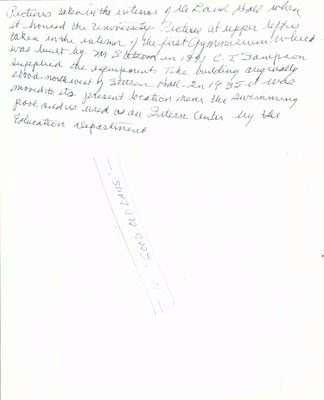 Pictures taken in the interior of DeLand Hall when
it housed the University Pictures at upper left is
taken in the interior of the first Gymnasium which
was built by Mr Stetson in 1891 C. T. Sampson
supplied the equipment. The building originally
stood northwest of Stetson Hall. In 1935 it was
moved to its present location near the swimming
pool and is used as an Intern Center by the
Education department
"GOOD OLD DAYS"